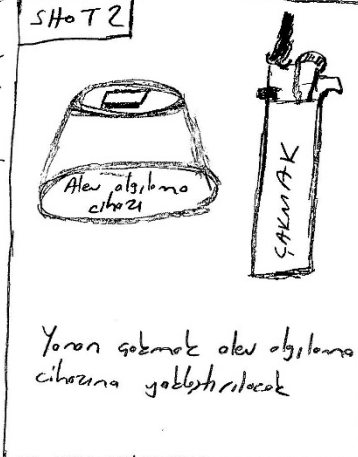 SHOT 2
Alev algılama
cihazı
ÇAKMAK
Yanan çakmak alev algılama
cihazına yaklaştırılacak